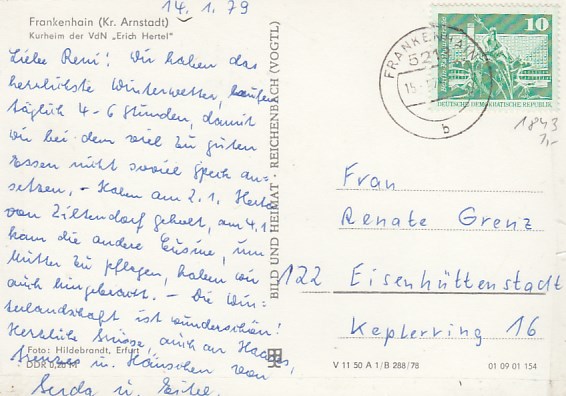 14.1.79
Frankenhain (Kr. Arnstadt)
Kurheim der VdN „Erich Hertel"
Liebe Reni! Wir haben das
herrlichste Winterwetter, laufen
täglich 4-6 Stunden, damit
wir bei dem viel zu guten
Essen nicht soviel Speck an-
setzen. - Haben am 2.1. Herta
von Ziltendorf geholt, am 4.1.
kam die andere Cusine, um
Mutter zu pflegen, haben wir
auch hingebracht. - Die Win-
terlandschaft ist wunderschön!
Herzliche Grüsse, auch an
u. Hänschen von
Gerda u.
Foto: Hildebrandt, Erfurt
DDR 0,20 M
BILD UND HEIMAT REICHENBACH (VOGTL)
FRANKENHAIN
521
15.
b
10
Berlin
DEUTSCHE DEMOKRATISCHE REPUBLIK
1843
1,-
Frau
Renate Grenz
122 Eisenhüttenstadt
Keplerring 16
V 11 50 A 1/B 288/78
01 09 01 154